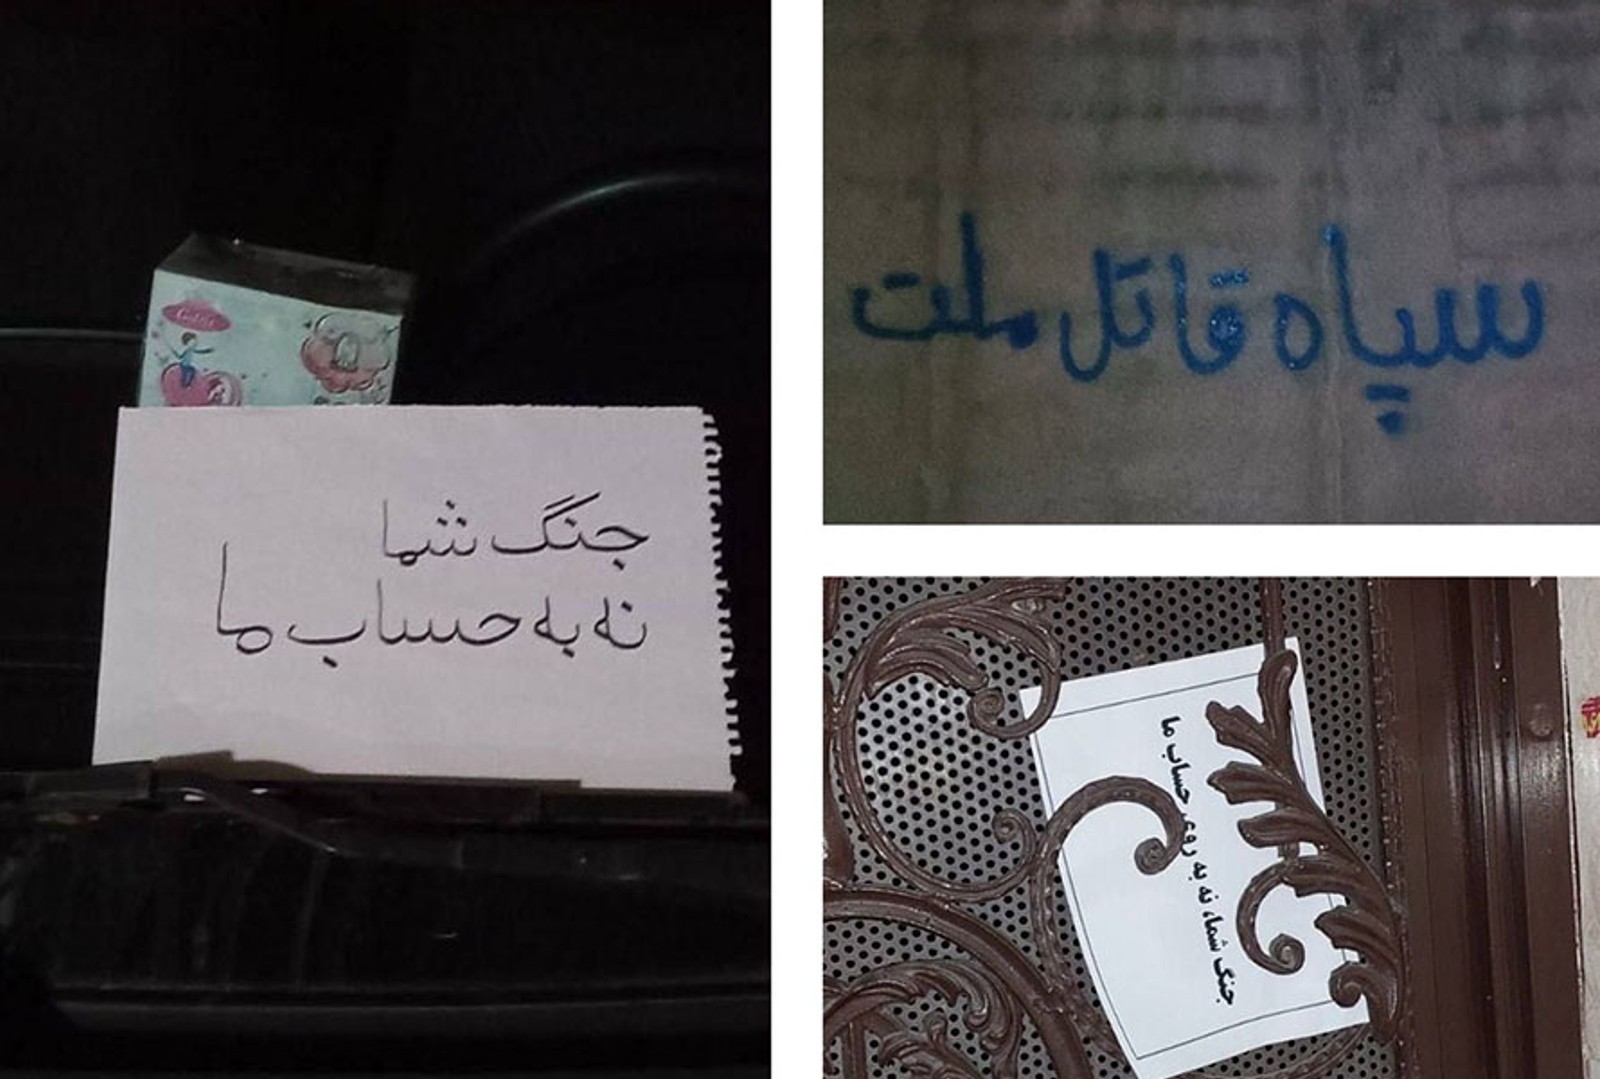 جنگ شما
نه به حساب ما
سپاه قاتل ملت
جنگ شما، نه به روی حساب ما